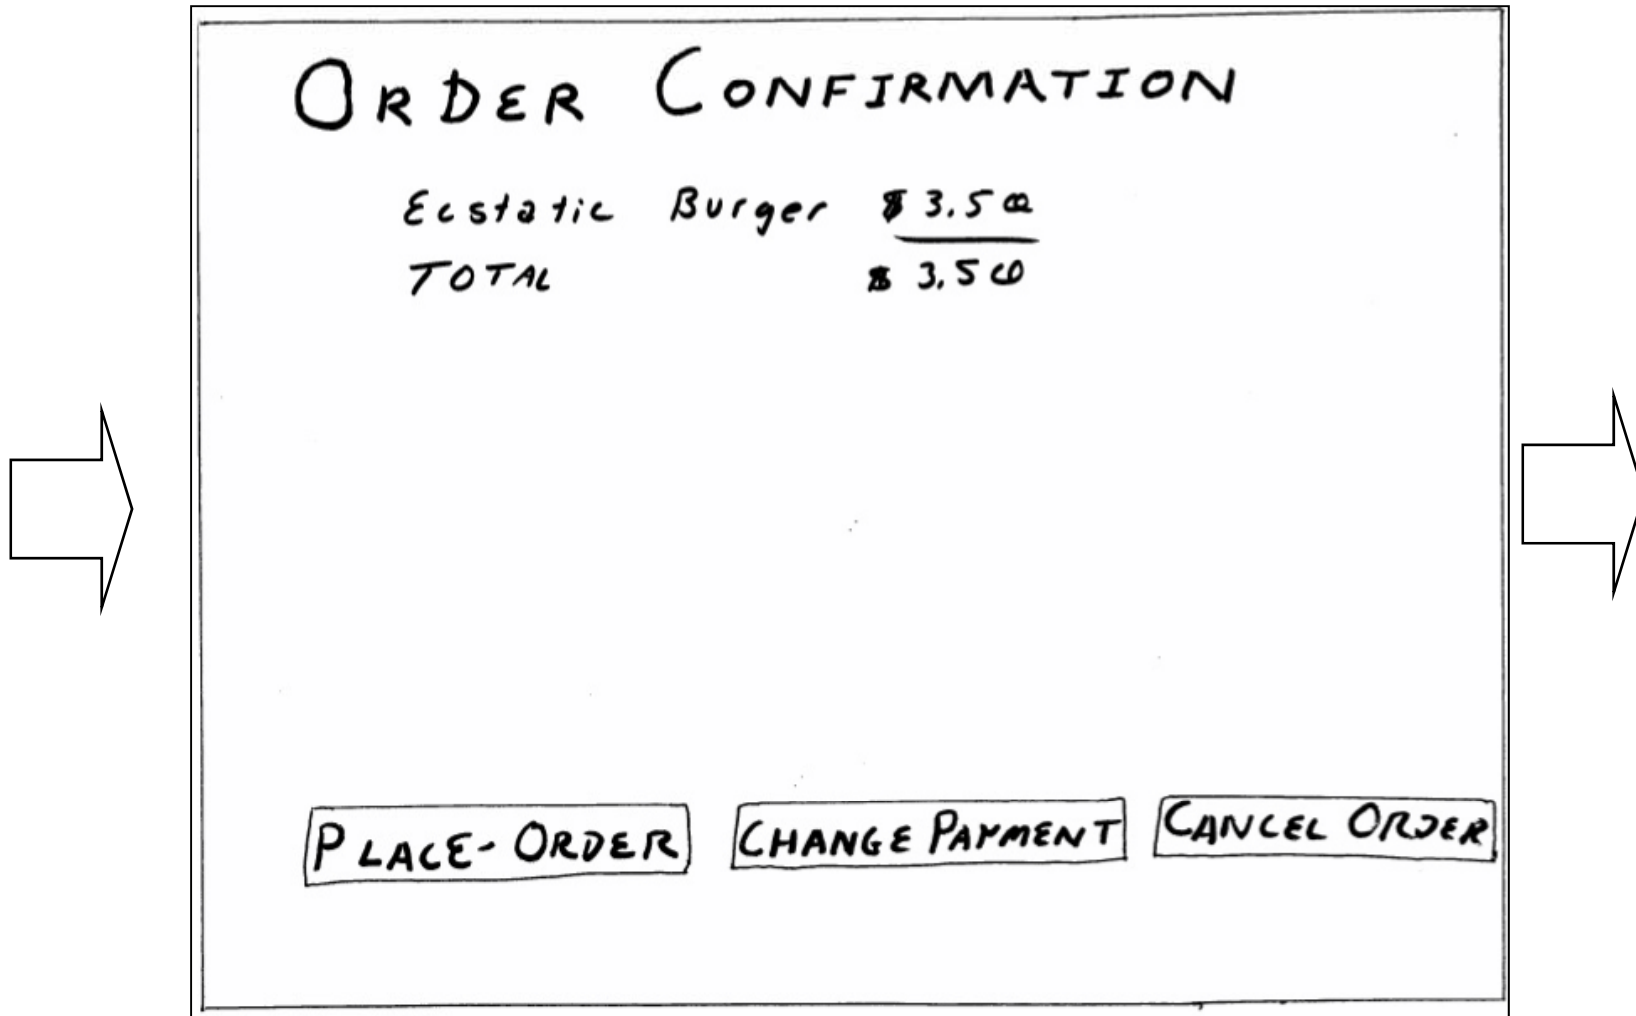 ORDER CONFIRMATION
Ecstatic Burger $3.50
TOTAL $3.50
PLACE-ORDER CHANGE PAYMENT CANCEL ORDER